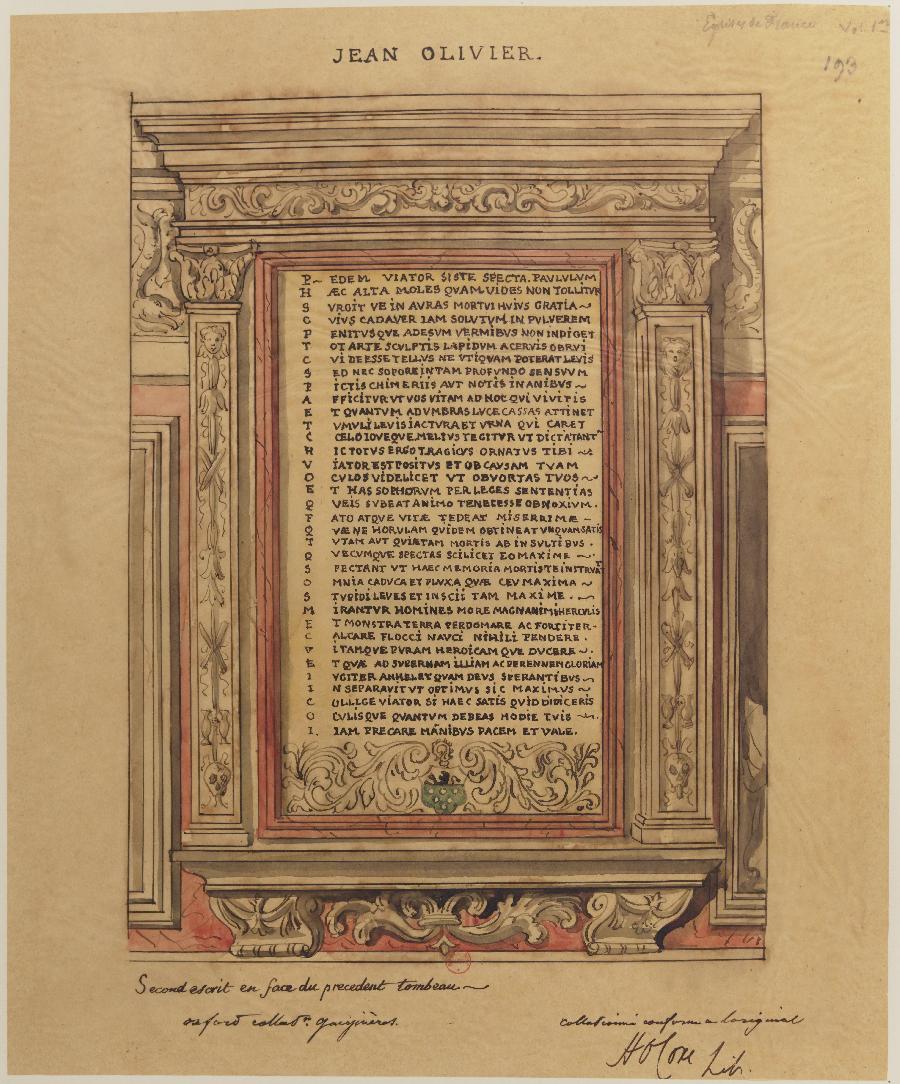 Eglises de France Vol. 1er
193
JEAN OLIVIER.
P~ EDEM VIATOR SISTE SPECTA. PAVLVLVM
H ÆC ALTA MOLES QVAM VIDES NON TOLLITVR
S VRGIT VE IN AVRAS MORTVI HVIVS GRATIA~
C VIVS CADAVER IAM SOLVTVM IN PVLVEREM
P ENITVSQVE ADESVM VERMIBVS NON INDIGET
T OT ARTE SCVLPTIS LAPIDVM ACERVIS OBRVI
C VI DEESSE TELLVS NE VTIQVAM POTERAT LEVIS
S ED NEC SOPORE IN TAM PROFVNDO SENSVVM
P ICTIS CHIMERIIS AVT NOTIS INANIBVS ~
A FFICITVR VT VOS VITAM AD HOC QVI VIVITIS
E T QVANTVM AD VMBRAS LVCE CASSAS ATTINET
T VMVLI LEVIS IACTVRA ET VRNA QVI CARET
C CELO IOVEQVE MELIVS TEGITVR VT DICTATANT
H IC TOTVS ERGO TRAGICVS ORNATVS TIBI ~
V IATOR EST POSITVS ET OB CAVSAM TVAM
O CVLOS VIDELICET VT OBVORTAS TVOS~
E T HAS SOPHORVM PER LEGES SENTENTIAS
Q VEIS SVBEAT ANIMO TE NECESSE OBNOXIVM.
F ATO ATQVE VITÆ TEDEAT MISERRIMÆ ~
Q VÆ NE HORVLAM QVIDEM OBTINEAT VNQVAM SATIS
T VTAM AVT QVIETAM MORTIS AB INSVLTIBVS.
Q VECVMQVE SPECTAS SCILICET EO MAXIME ~
S PECTANT VT HAEC MEMORIA MORTIS TE INSTRVAT
O MNIA CADVCA ET FLVXA QVÆ CEV MAXIMA ~
S TVPIDI LEVES ET INSCII TAM MAXIME. ~
M IRANTVR HOMINES MORE MAGNANIMI HERCVLIS
E T MONSTRA TERRA PERDOMARE AC FORTITER
C ALCARE FLOCCI NAVCI NIHILI PENDERE.
V ITAMQVE PVRAM HEROICAMQVE DVCERE ~.
E T QVÆ AD SVPERNAM ILLIAM AC PERENNEM GLORIAM
I VGITER ANHELET QVAM DEVS SPERANTIBVS ~
I N SEPARAVIT VT OPTIMVS SIC MAXIMVS ~
C OLLLGE VIATOR SI HAEC SATIS QVID DIDICERIS
O CVLISQVE QVANTVM DEBEAS HODIE TVIS ~.
I. IAM PRECARE MANIBVS PACEM ET VALE.
Second escrit en face du precedent tombeau~
oxford collect.n gaignières.
collationné conforme a l'original